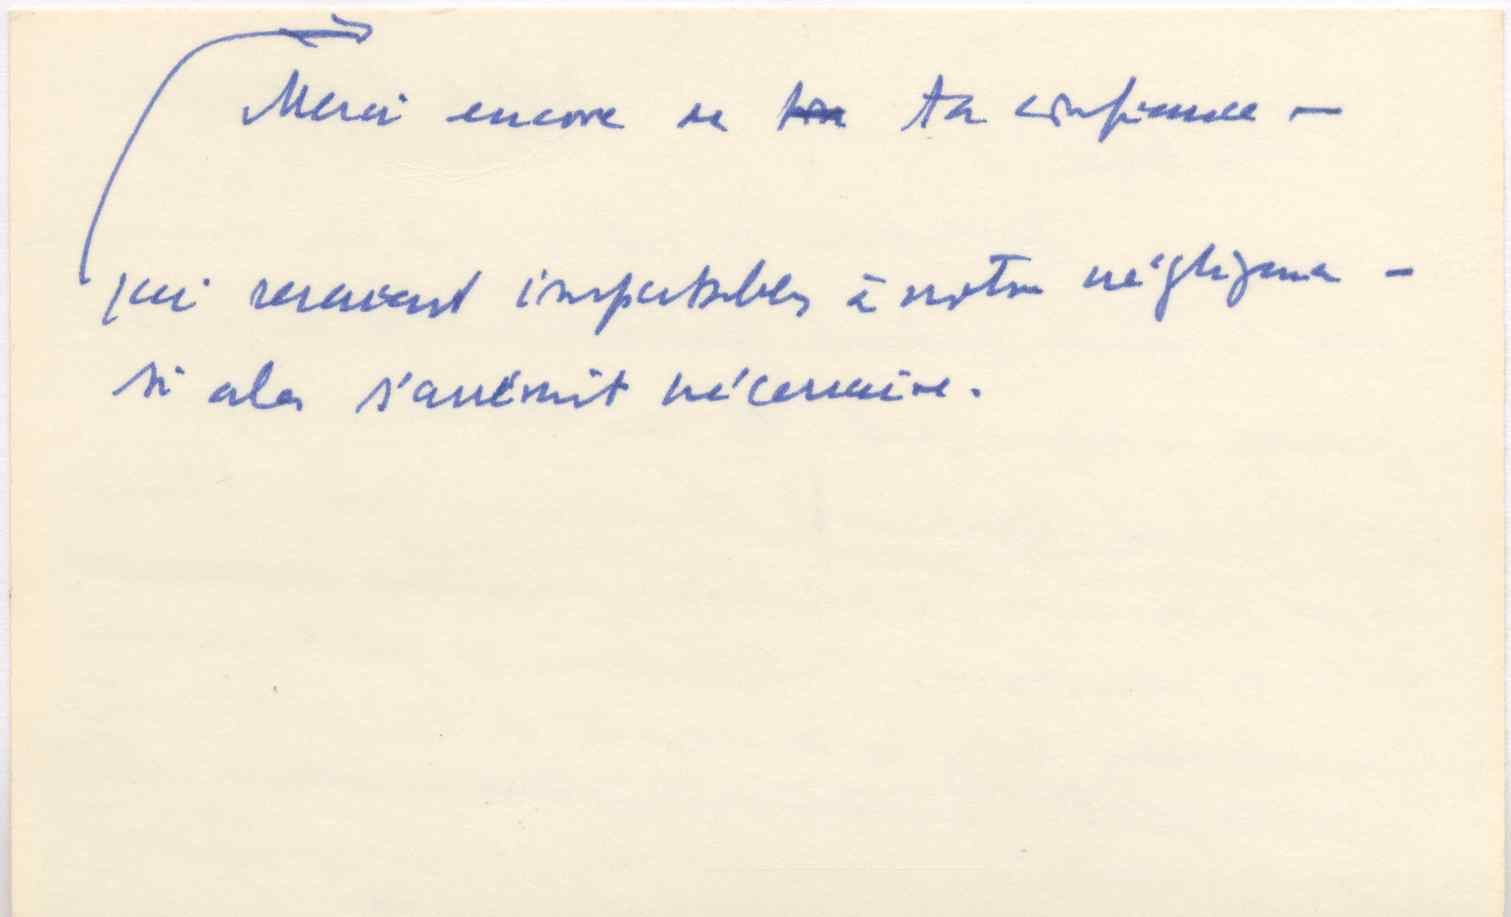 Merci encore de ta confiance —
qui seraient imputables à notre négligence —
si cela s'avérait nécessaire.